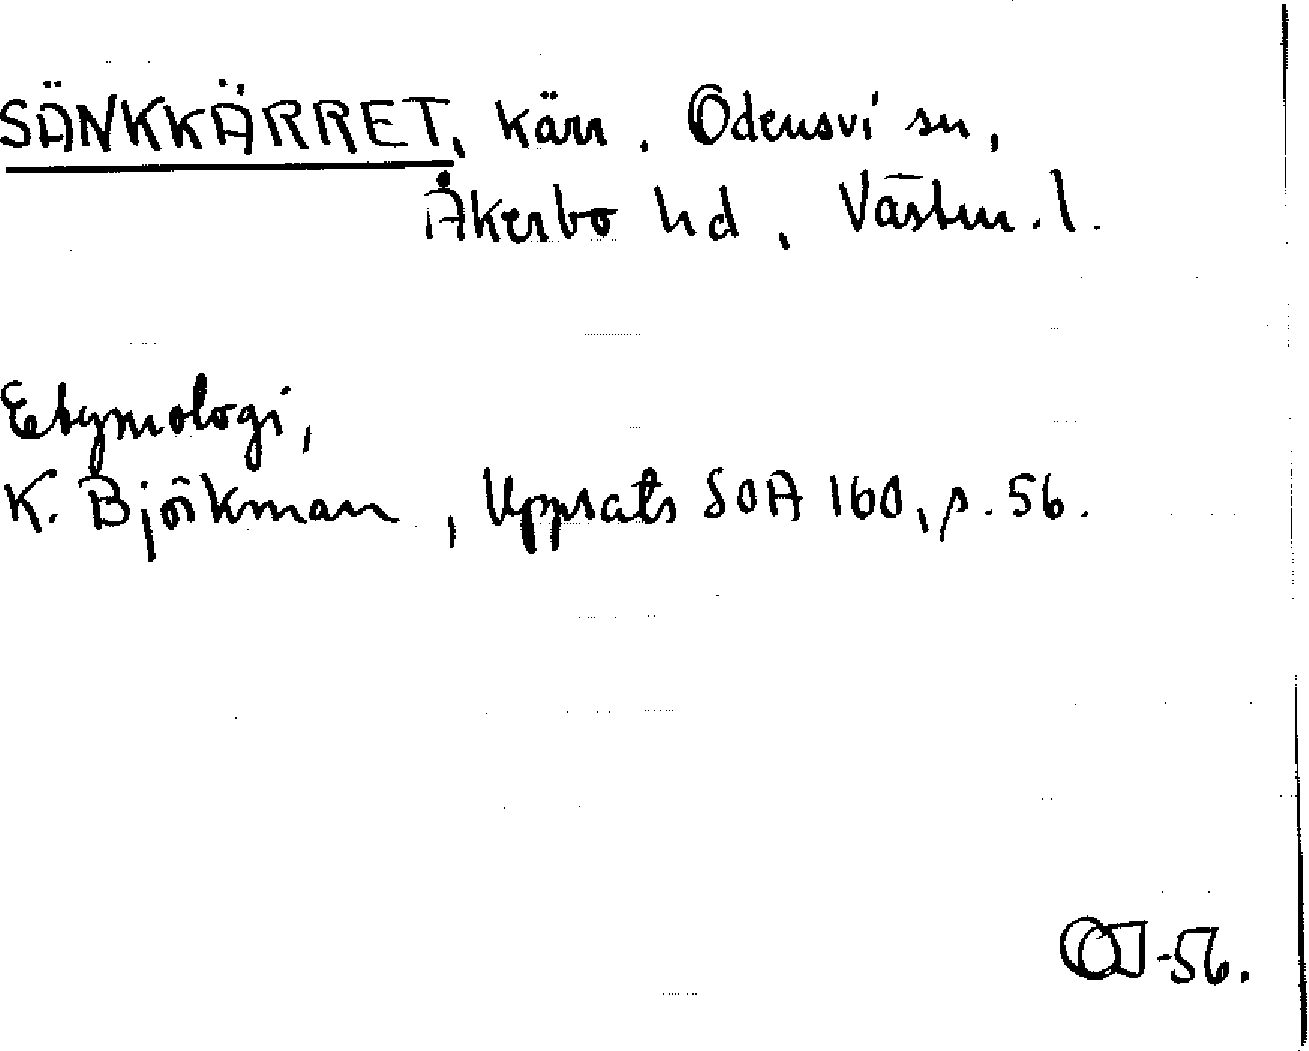 SÄNKKÄRRET, kärr. Odensvi sn,
Åkerbo hd, Västm.l.
Etymologi,
K. Björkman, Uppsats SOA 160, s. 56.
OJ-56.